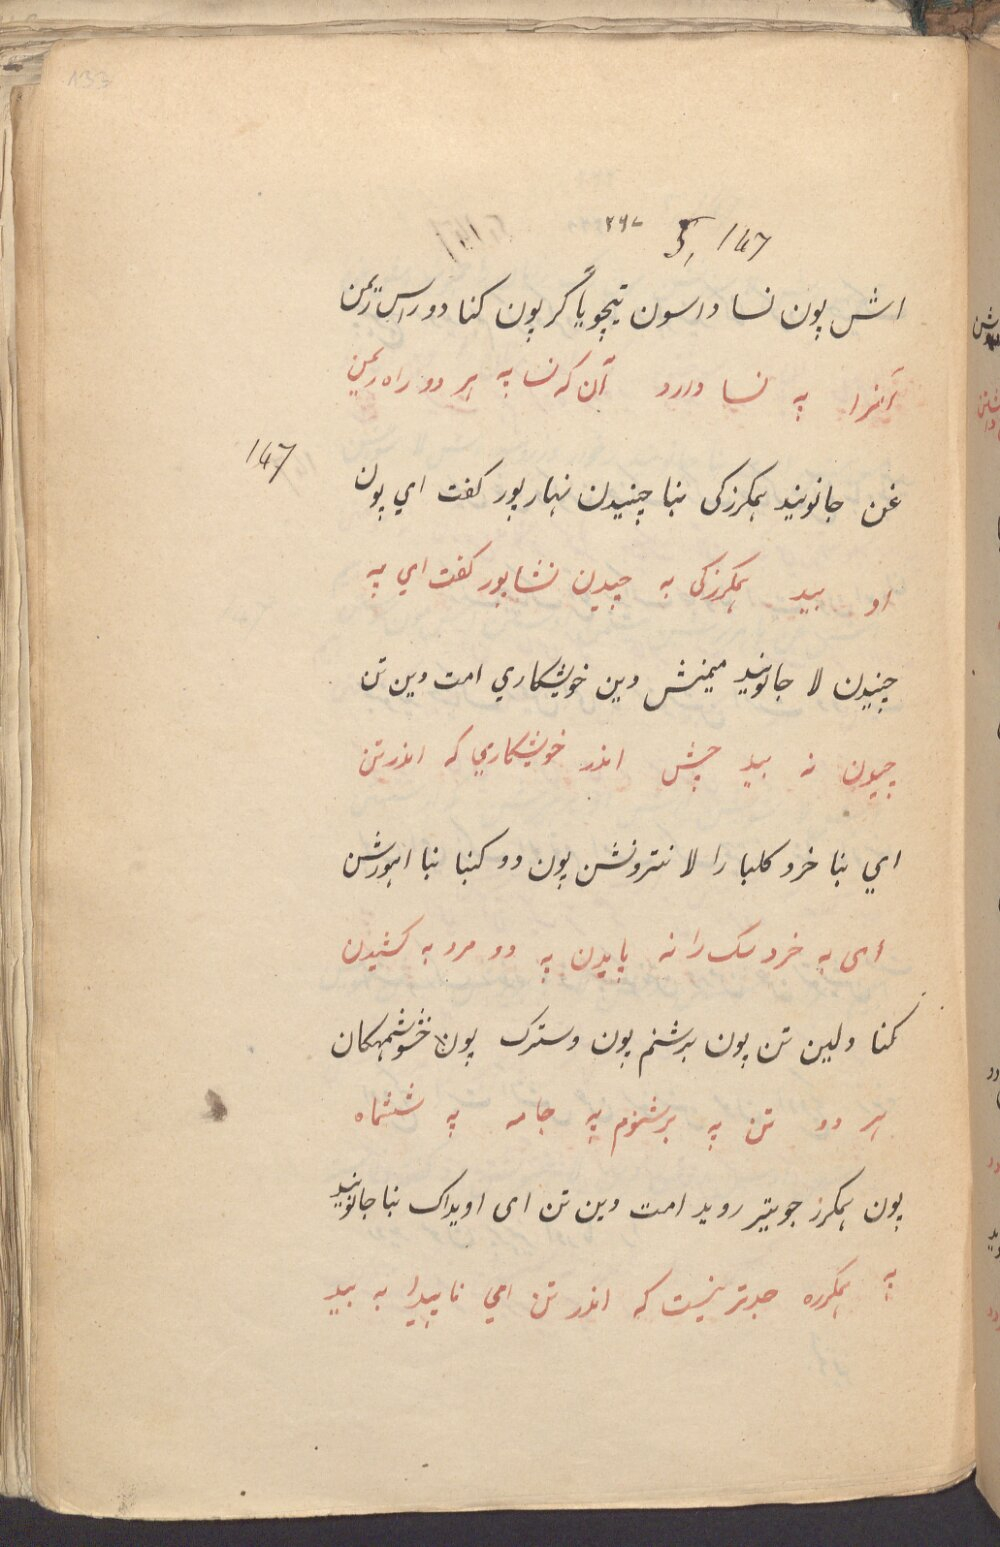 133
5, 147 ۲۶۷
اش پون نسا داسون تیچویاگر پون کنا دو راس ریمن
آنرا په نسا دارد آن که نسا په هر دو راه ریمن
147
غن جانونید همکرزکی بنا چنیدن نهارپور کفت ای پون
او بید همکرزکی به چیدن نشاپور کفت ای په
چنیدن لا جانونید میمنش دین خویشکاری امت دین تن
چیدن نه بید چش اندر خویشکاری که اندر تن
ای بنا خرد کلبا را لا نترونشن پون دو کنبا بنا اهورشن
ای به خرد سک را نه پایدن په دو مرد به کشیدن
کنا ولین تن پون برشنم پون وسترک پون خشوشمهکان
هر دو تن په برشنوم په جامه په ششماه
پون همکرز جویتر روید امت دین تن ای اویداک بنا جانونید
په همکرزه جدتر نیست که اندر تن ای ناپیدا به بید